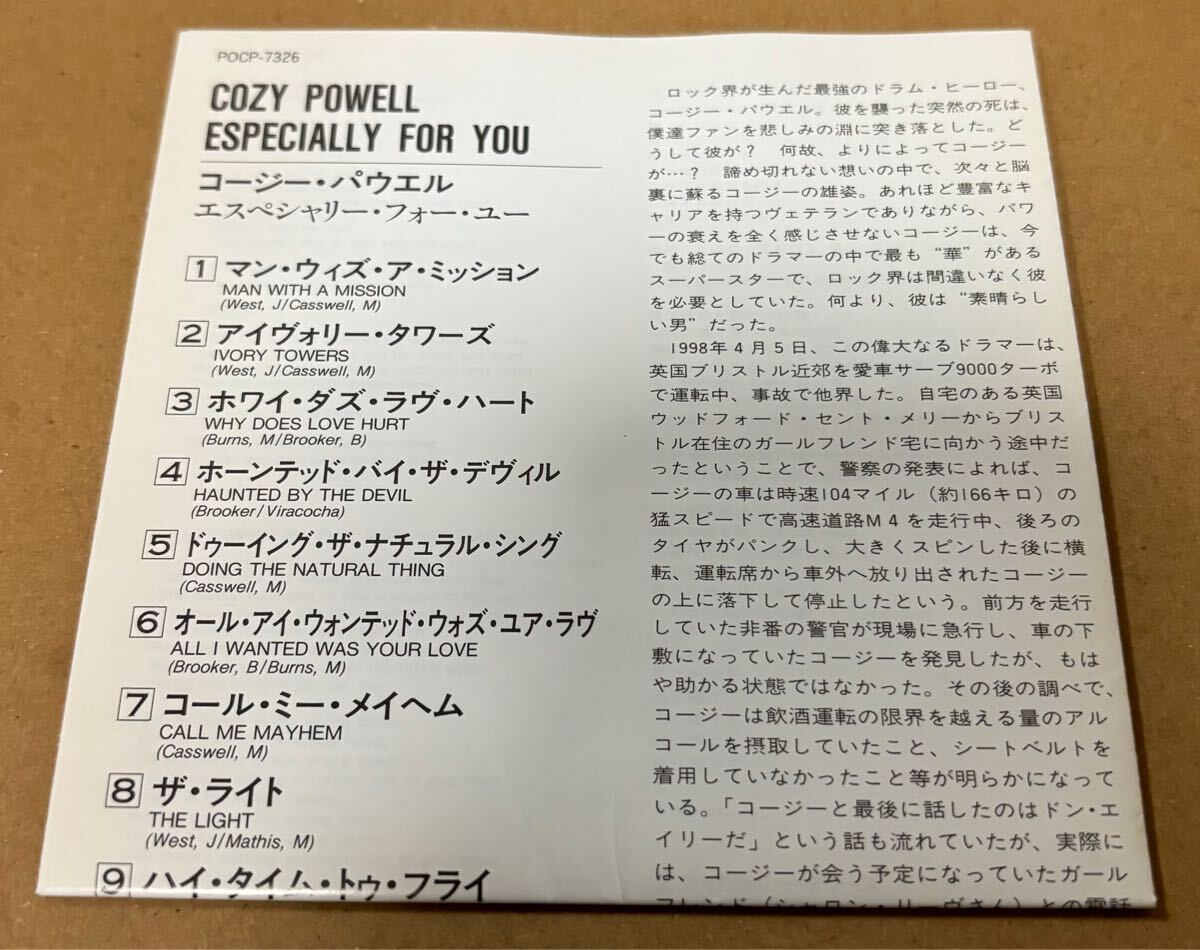 POCP-7326
COZY POWELL
ESPECIALLY FOR YOU
コージー・パウエル
エスペシャリー・フォー・ユー
1 マン・ウィズ・ア・ミッション
MAN WITH A MISSION
(West, J/Casswell, M)
2 アイヴォリー・タワーズ
IVORY TOWERS
(West, J/Casswell, M)
3 ホワイ・ダズ・ラヴ・ハート
WHY DOES LOVE HURT
(Burns, M/Brooker, B)
4 ホーンテッド・バイ・ザ・デヴィル
HAUNTED BY THE DEVIL
(Brooker/Viracocha)
5 ドゥーイング・ザ・ナチュラル・シング
DOING THE NATURAL THING
(Casswell, M)
6 オール・アイ・ウォンテッド・ウォズ・ユア・ラヴ
ALL I WANTED WAS YOUR LOVE
(Brooker, B/Burns, M)
7 コール・ミー・メイヘム
CALL ME MAYHEM
(Casswell, M)
8 ザ・ライト
THE LIGHT
(West, J/Mathis, M)
9 ハイ・タイム・トゥ・フライ
ロック界が生んだ最強のドラム・ヒーロー、
コージー・パウエル。彼を襲った突然の死は、
僕達ファンを悲しみの淵に突き落とした。ど
うして彼が? 何故、よりによってコージー
が…? 諦め切れない想いの中で、次々と脳
裏に蘇るコージーの雄姿。あれほど豊富なキ
ャリアを持つヴェテランでありながら、パワ
ーの衰えを全く感じさせないコージーは、今
でも総てのドラマーの中で最も“華”がある
スーパースターで、ロック界は間違いなく彼
を必要としていた。何より、彼は“素晴らし
い男”だった。
1998年4月5日、この偉大なるドラマーは、
英国ブリストル近郊を愛車サーブ9000ターボ
で運転中、事故で他界した。自宅のある英国
ウッドフォード・セント・メリーからブリス
トル在住のガールフレンド宅に向かう途中だ
ったということで、警察の発表によれば、コ
ージーの車は時速104マイル（約166キロ）の
猛スピードで高速道路M4を走行中、後ろの
タイヤがパンクし、大きくスピンした後に横
転、運転席から車外へ放り出されたコージー
の上に落下して停止したという。前方を走行
していた非番の警官が現場に急行し、車の下
敷になっていたコージーを発見したが、もは
や助かる状態ではなかった。その後の調べで、
コージーは飲酒運転の限界を越える量のアル
コールを摂取していたこと、シートベルトを
着用していなかったこと等が明らかになって
いる。「コージーと最後に話したのはドン・エ
イリーだ」という話も流れていたが、実際に
は、コージーが会う予定になっていたガール
フレンド（シャロン・リーヴさん）との電話